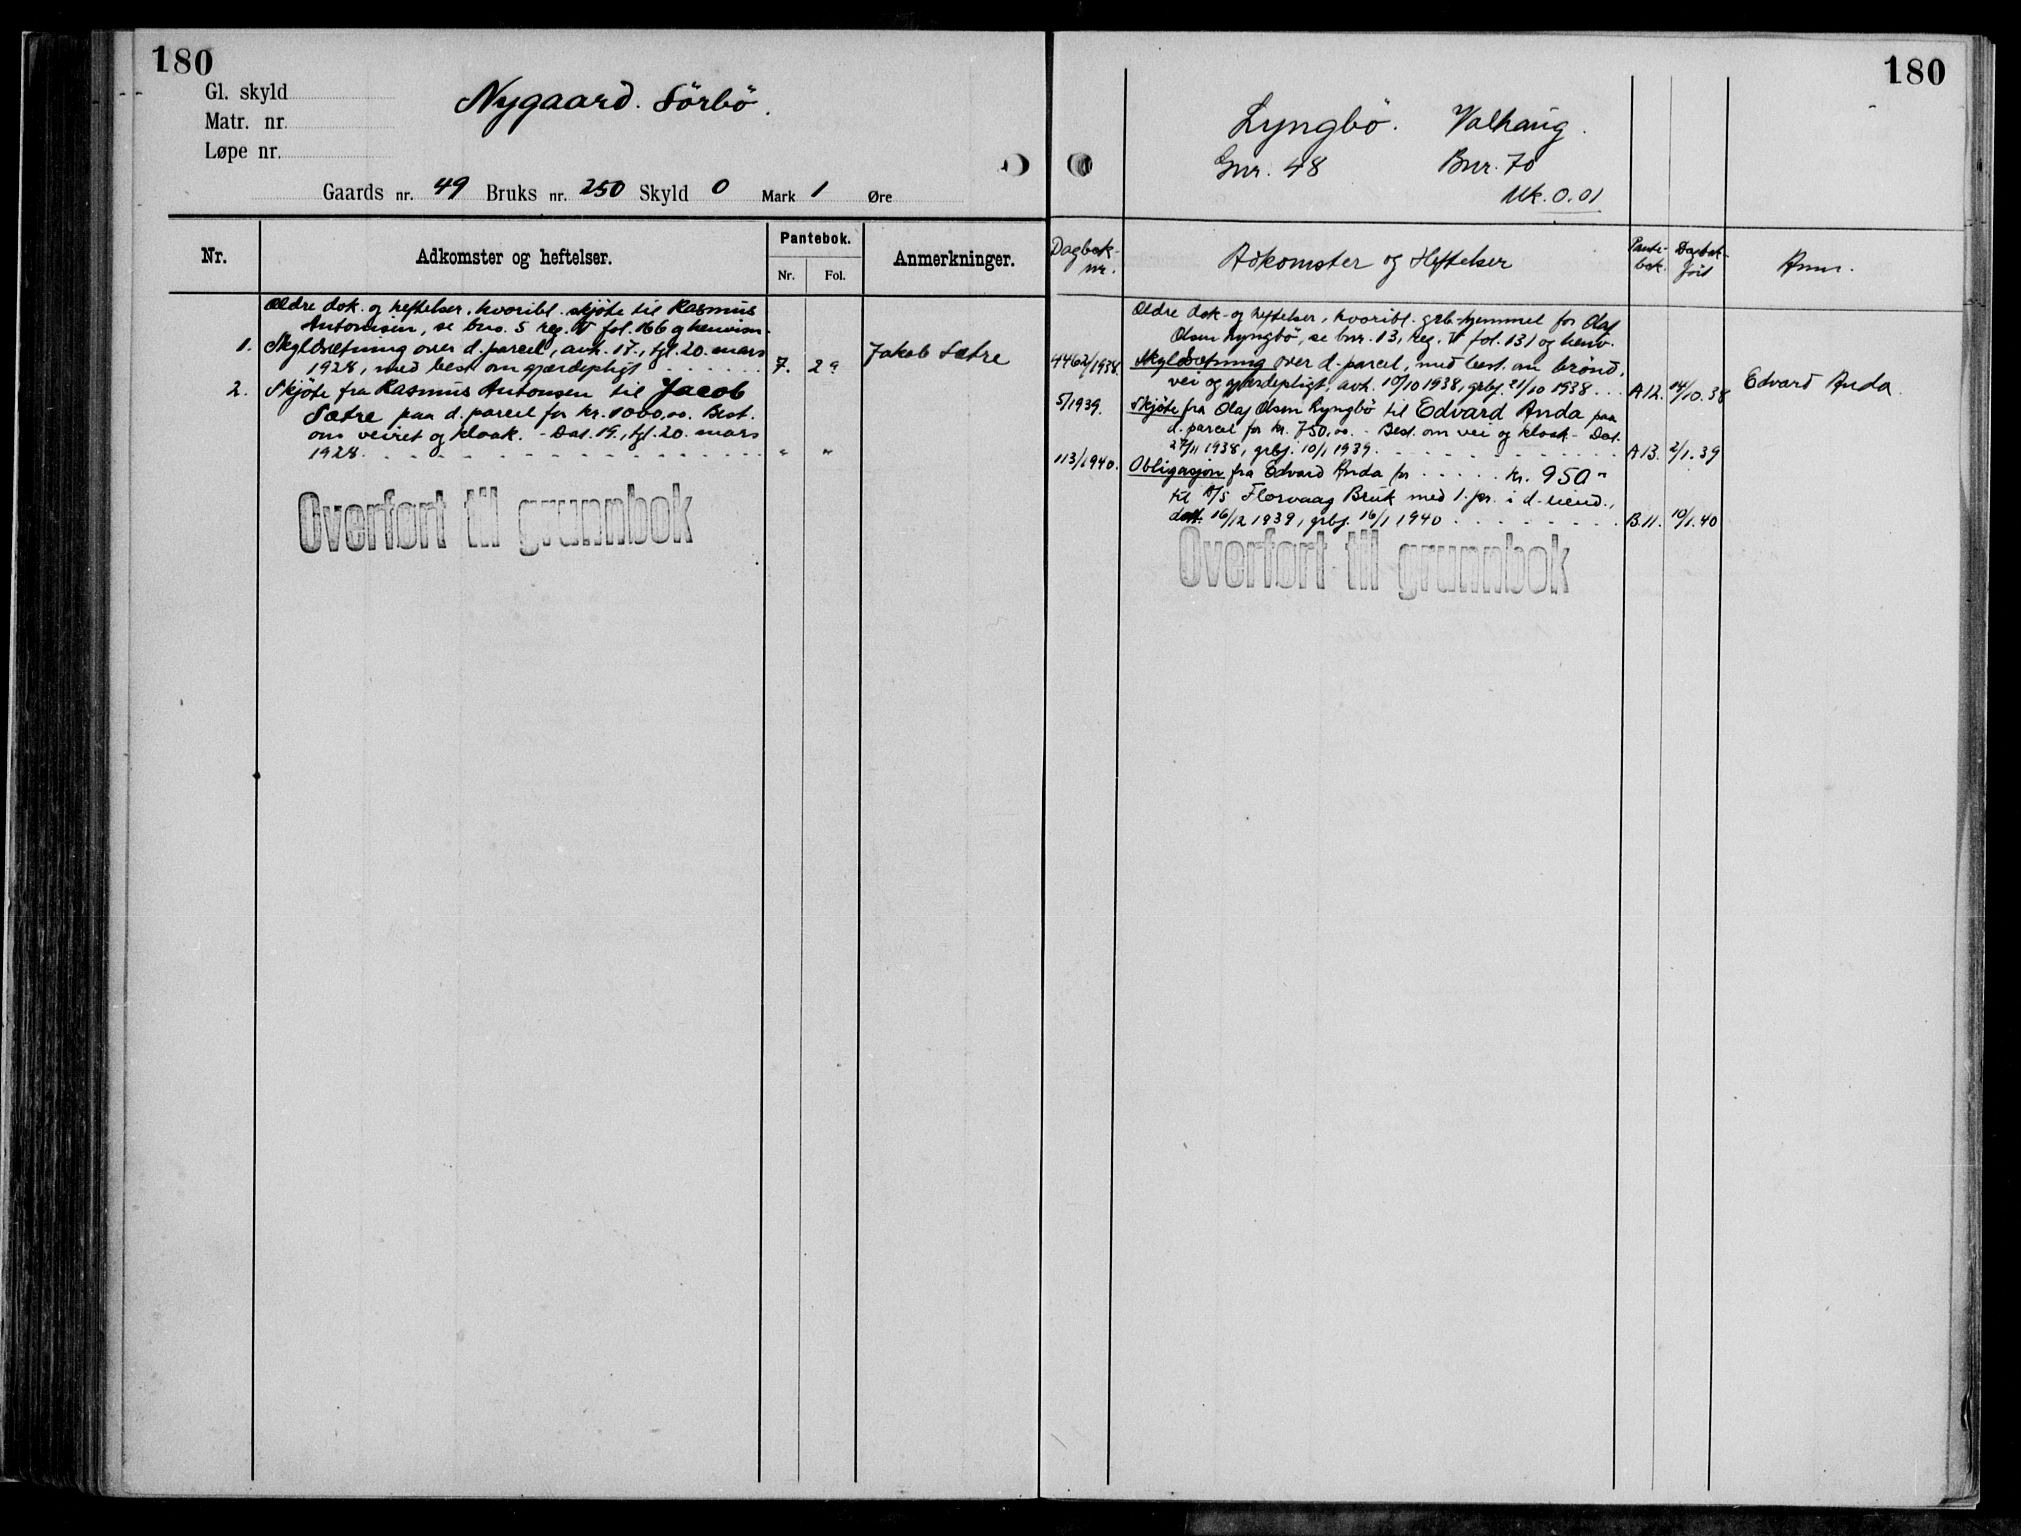 180
Gl. skyld
Matr. nr.
Løpe nr.
Nygaard. Sörbö.
Gaards nr. 49 Bruks nr. 250 Skyld 0 Mark 1 Øre
Nr.
Adkomster og heftelser.
Pantebok.
Nr. Fol.
Anmerkninger.
Ældre dok. og heftelser, hvoribl. skjöte til Rasmus
Antonisen, se bno. 5 reg. V fol. 166 og henvisn.
1. Skyldsætning over d. parcel, avh. 17., tgl. 20. mars
1928, med best om gjærdepligt 7. 29
Jakob Sætre
2. Skjöte fra Rasmus Antonsen til Jacob
Sætre paa d. parcel for kr. 1000,00. Best.
om veiret og kloak. - Dat. 19., tgl. 20. mars
1928 " "
Overført til grunnbok
180
Lyngbö. Valhaug.
Gnr. 48 Bnr. 70
Mk. 0.01
Dagbok-
nr.
Adkomster og Heftelser
Pante-
bok.
Dagbok-
ført
Anm.
Ældre dok. og heftelser, hvoribl. grb. hjemmel for Olaf
Olsen Lyngbö, se bnr. 13, reg. V fol. 131 og henv.
4462/1938. Skyldsætning over d. parcel, med best. om brönd,
vei og gjærdepligt, avh. 10/10 1938, grbf. 21/10 1938 A12. 14/10.38
Edvard Anda.
5/1939. Skjöte fra Olaf Olsen Lyngbö til Edvard Anda paa
d. parcel for kr. 750,00. - Best. om vei og kloak - Dat.
27/11 1938, grbf. 10/1 1939 A13. 2/1.39
113/1940. Obligasjon fra Edvard Anda for kr. 950 "
til A/S Florvaag Bruk med 1. pr. i d. eiend.,
dat. 16/12 1939, grbf. 16/1 1940 B.11. 10/1.40
Overført til grunnbok